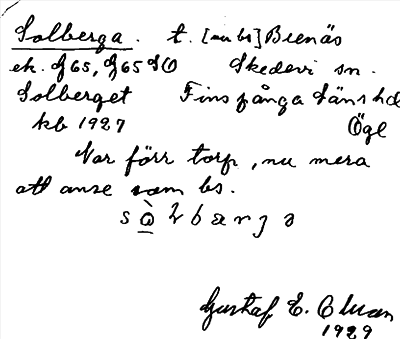 Solberga. t. [nu bs] Brenäs
ek. J65, J65 SO Skedevi sn.
Solberget Finspånga läns hd
kb 1927 Ögl
Var förr torp, nu mera
att anse som bs.
Gustaf E. Olman
1929